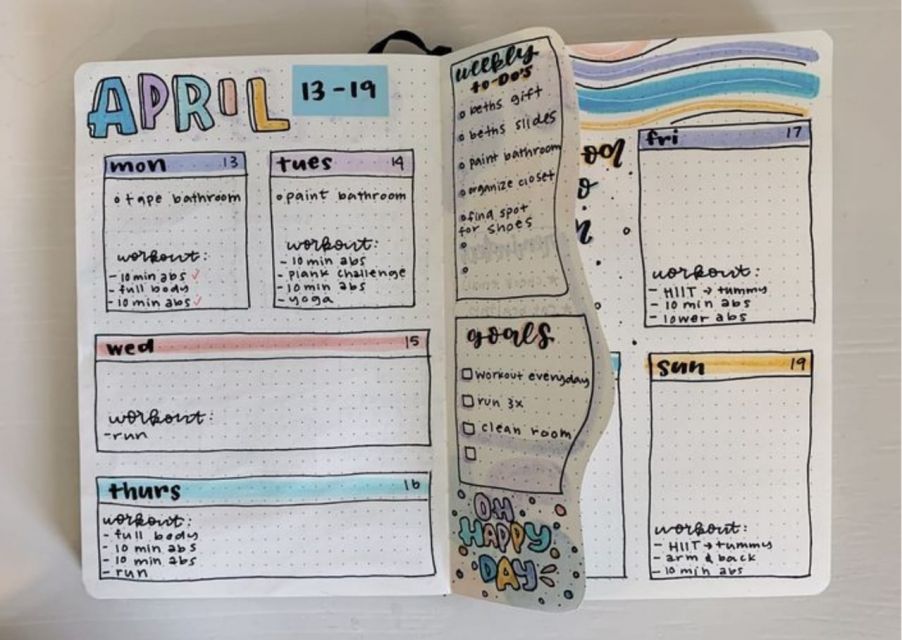 APRIL 13-19
mon 13
tape bathroom
workout:
- 10 min abs ✓
- full body
- 10 min abs ✓
tues 14
paint bathroom
workout:
- 10 min abs
- plank challenge
- 10 min abs
- yoga
wed 15
workout:
- run
thurs 16
workout:
- full body
- 10 min abs
- 10 min abs
- run
weekly
to-do's
beths gift
beths slides
paint bathroom
organize closet
find spot
for shoes
goals
workout everyday
run 3x
clean room
OH
HAPPY
DAY
fri 17
workout:
- HIIT → tummy
- 10 min abs
- lower abs
sun 19
workout:
- HIIT → tummy
- arm & back
- 10 min abs